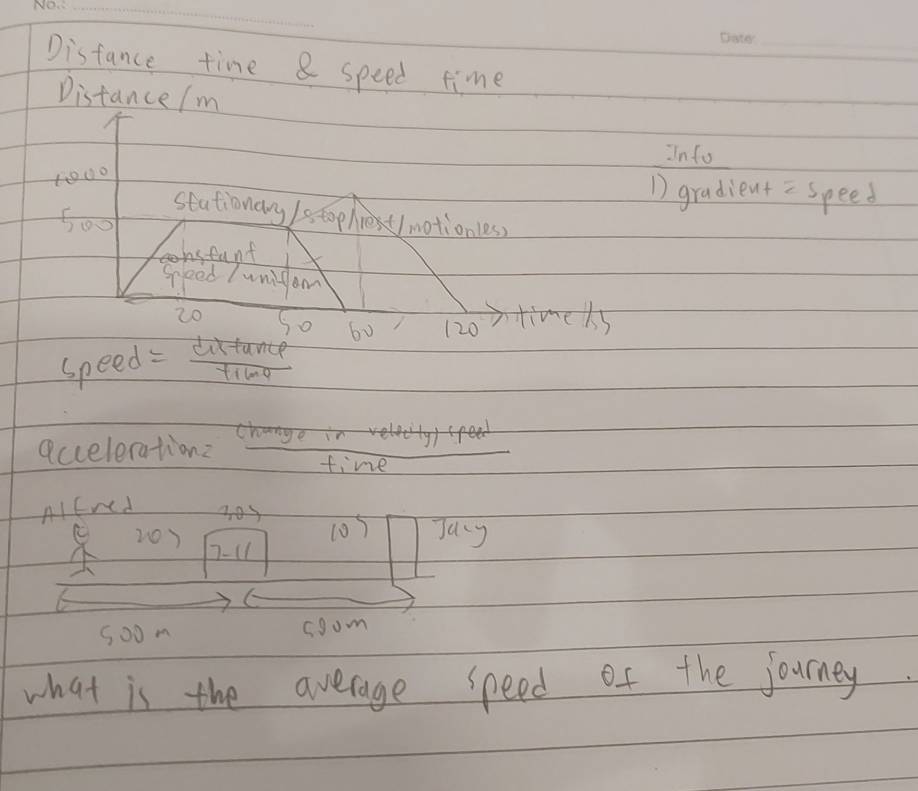 No.:
Date
Distance time & speed time
Distance/m
Info
1000
1) gradient = speed
500
Stationary/stop/rest/motionless
constant
speed/uniform
20 50 60 120 time/s
speed = distance
time
acceleration = change in velocity, speed
time
Alfred 20s 30s 7-11 10s
500m 500m
what is the average speed of the journey.